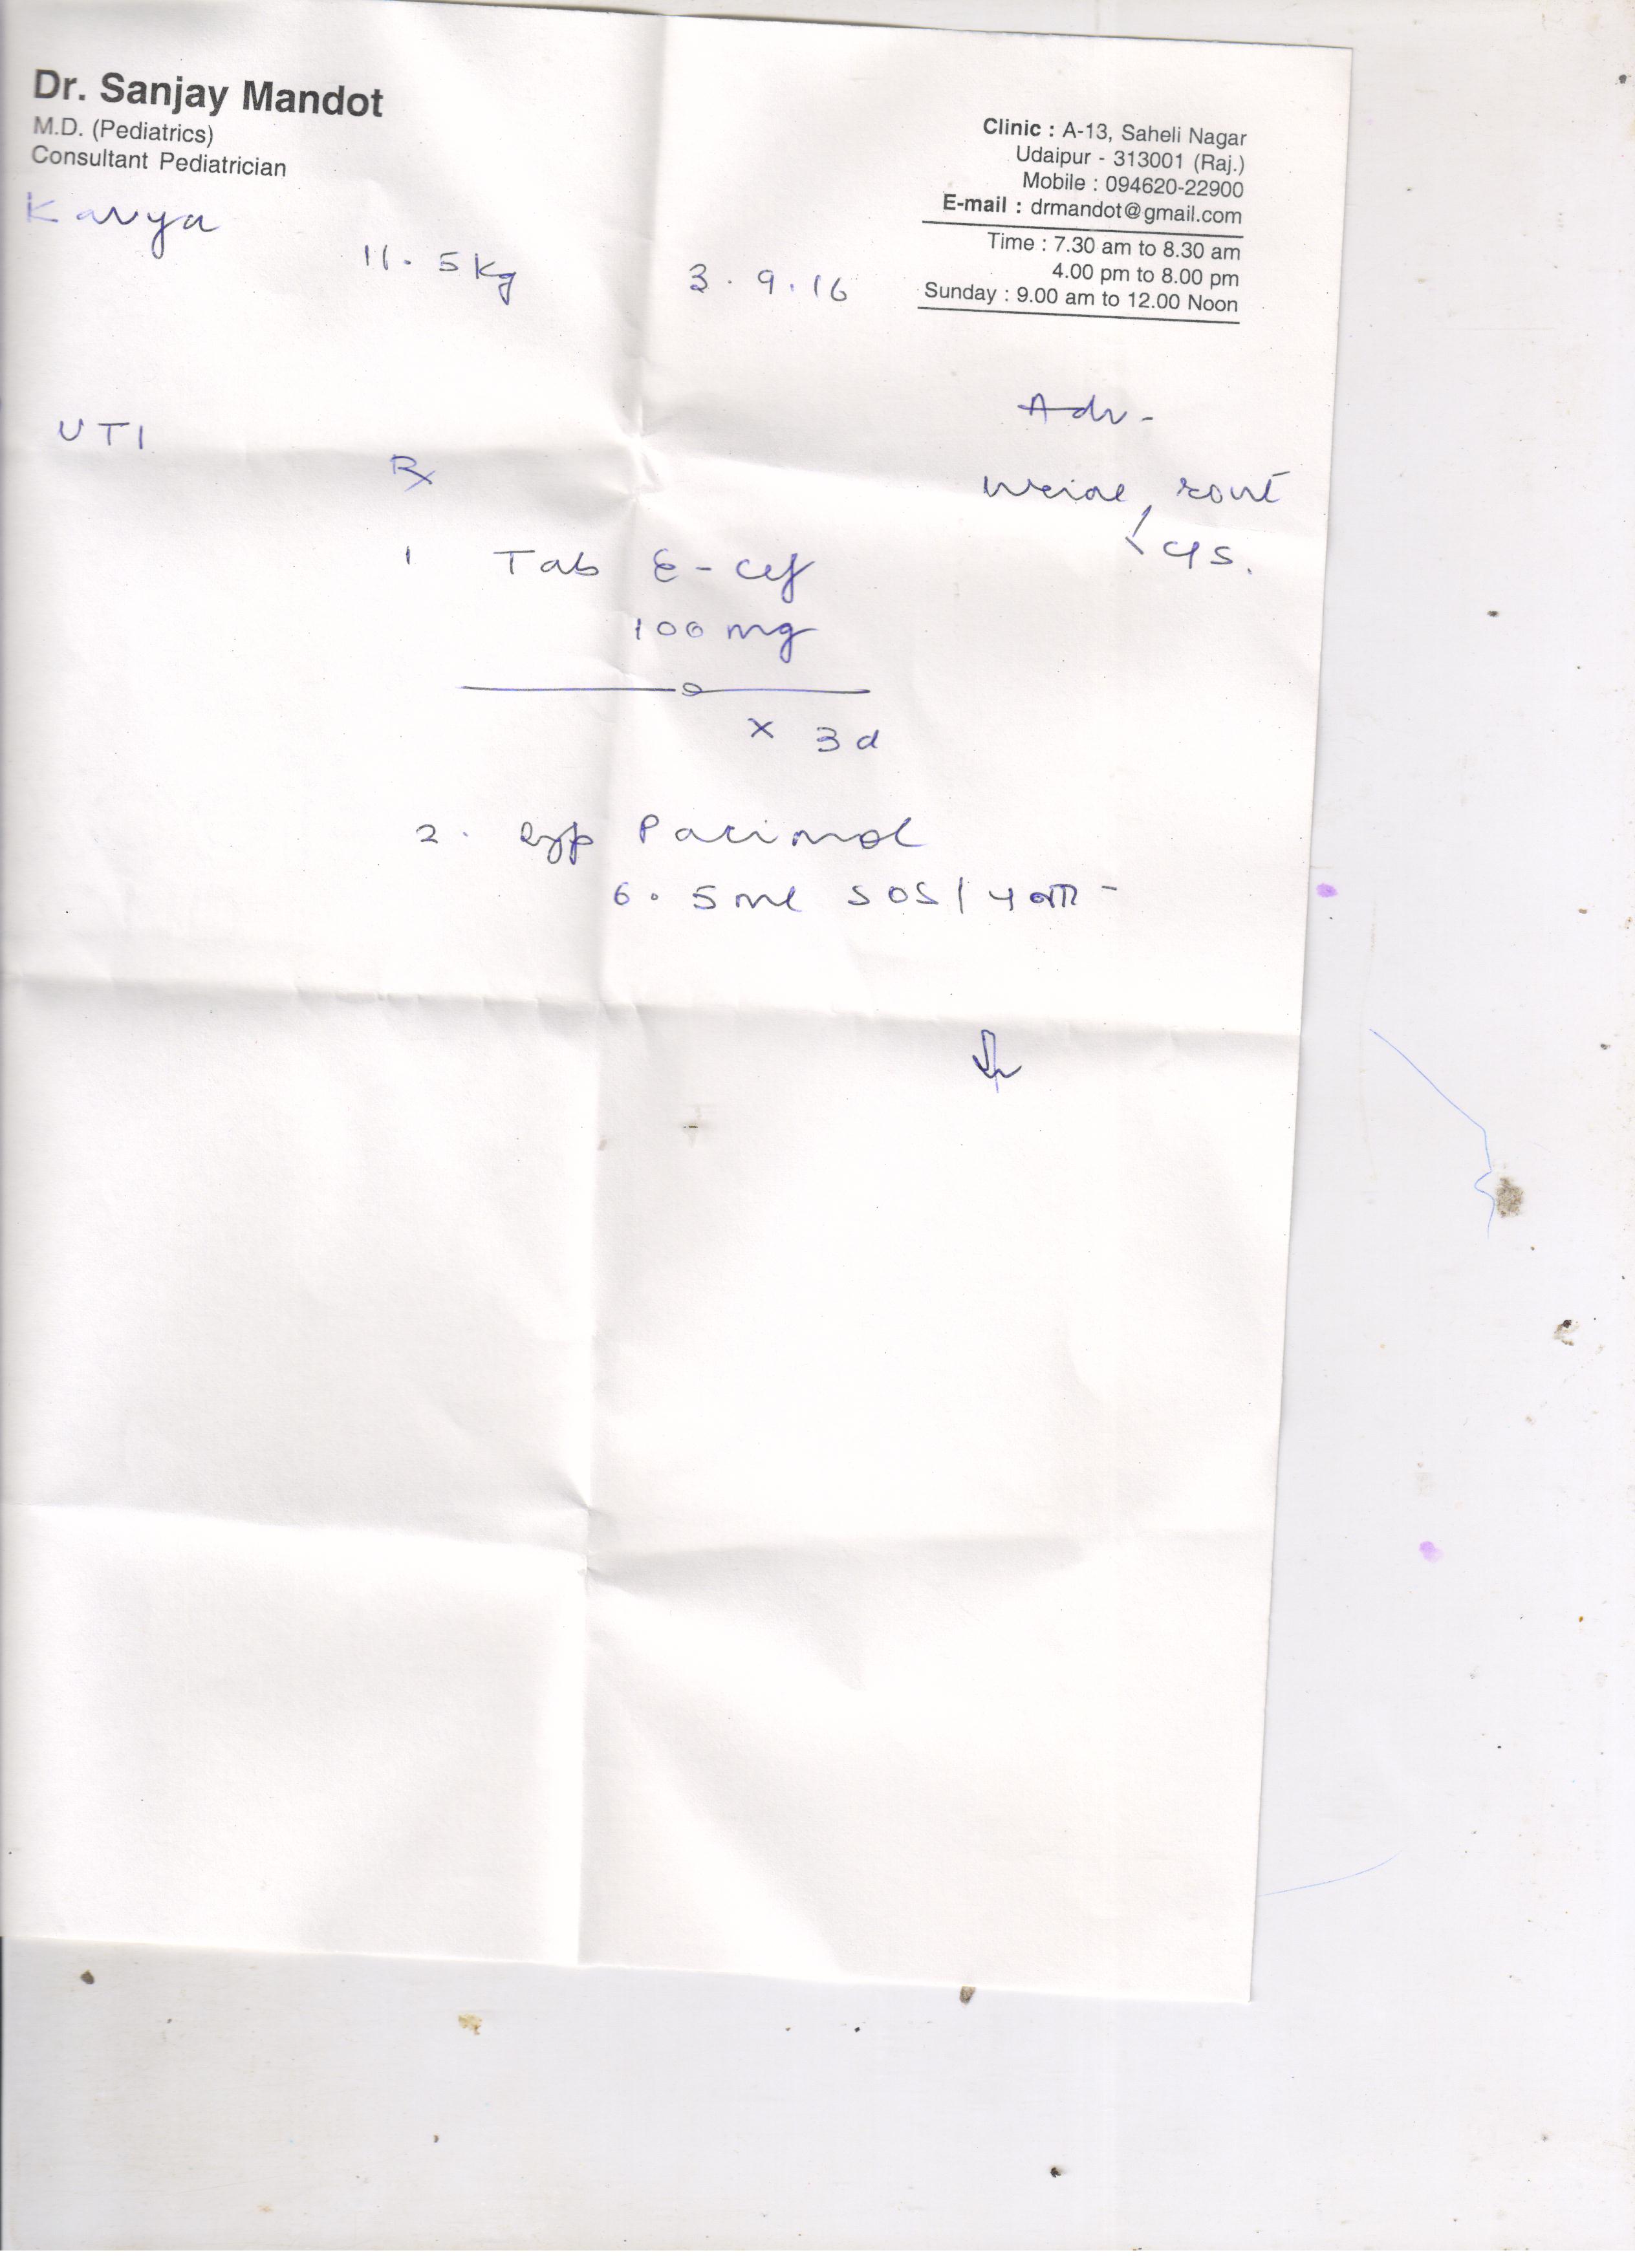 Dr. Sanjay Mandot
M.D. (Pediatrics)
Consultant Pediatrician
Clinic : A-13, Saheli Nagar
Udaipur - 313001 (Raj.)
Mobile : 094620-22900
E-mail : drmandot@gmail.com
Time : 7.30 am to 8.30 am
4.00 pm to 8.00 pm
Sunday : 9.00 am to 12.00 Noon
Kavya
11.5 kg
3.9.16
UTI
Rx
1 Tab E-cef
100 mg
x 3d
2. Syp Pacimol
6.5 ml SOS/4
Adv-
Urine, rout
c/s.